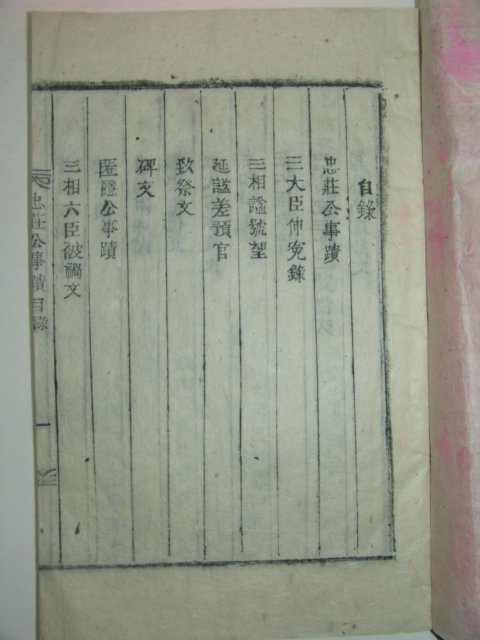 目錄
忠莊公事蹟
三大臣伸寃錄
三相諡號望
延諡差預官
致祭文
碑文
匿隱公事蹟
三相六臣被禍文
忠莊公事蹟目錄
一